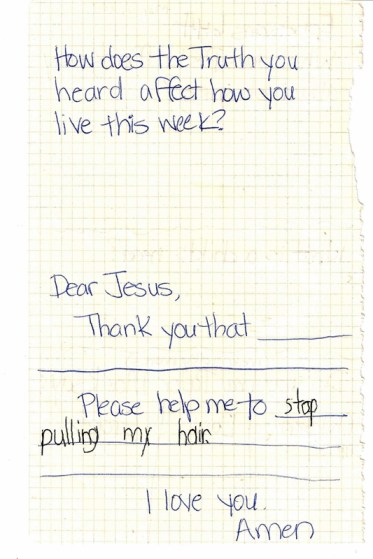 How does the Truth you
heard affect how you
live this week?
Dear Jesus,
Thank you that
Please help me to stop
pulling my hair.
I love you.
Amen